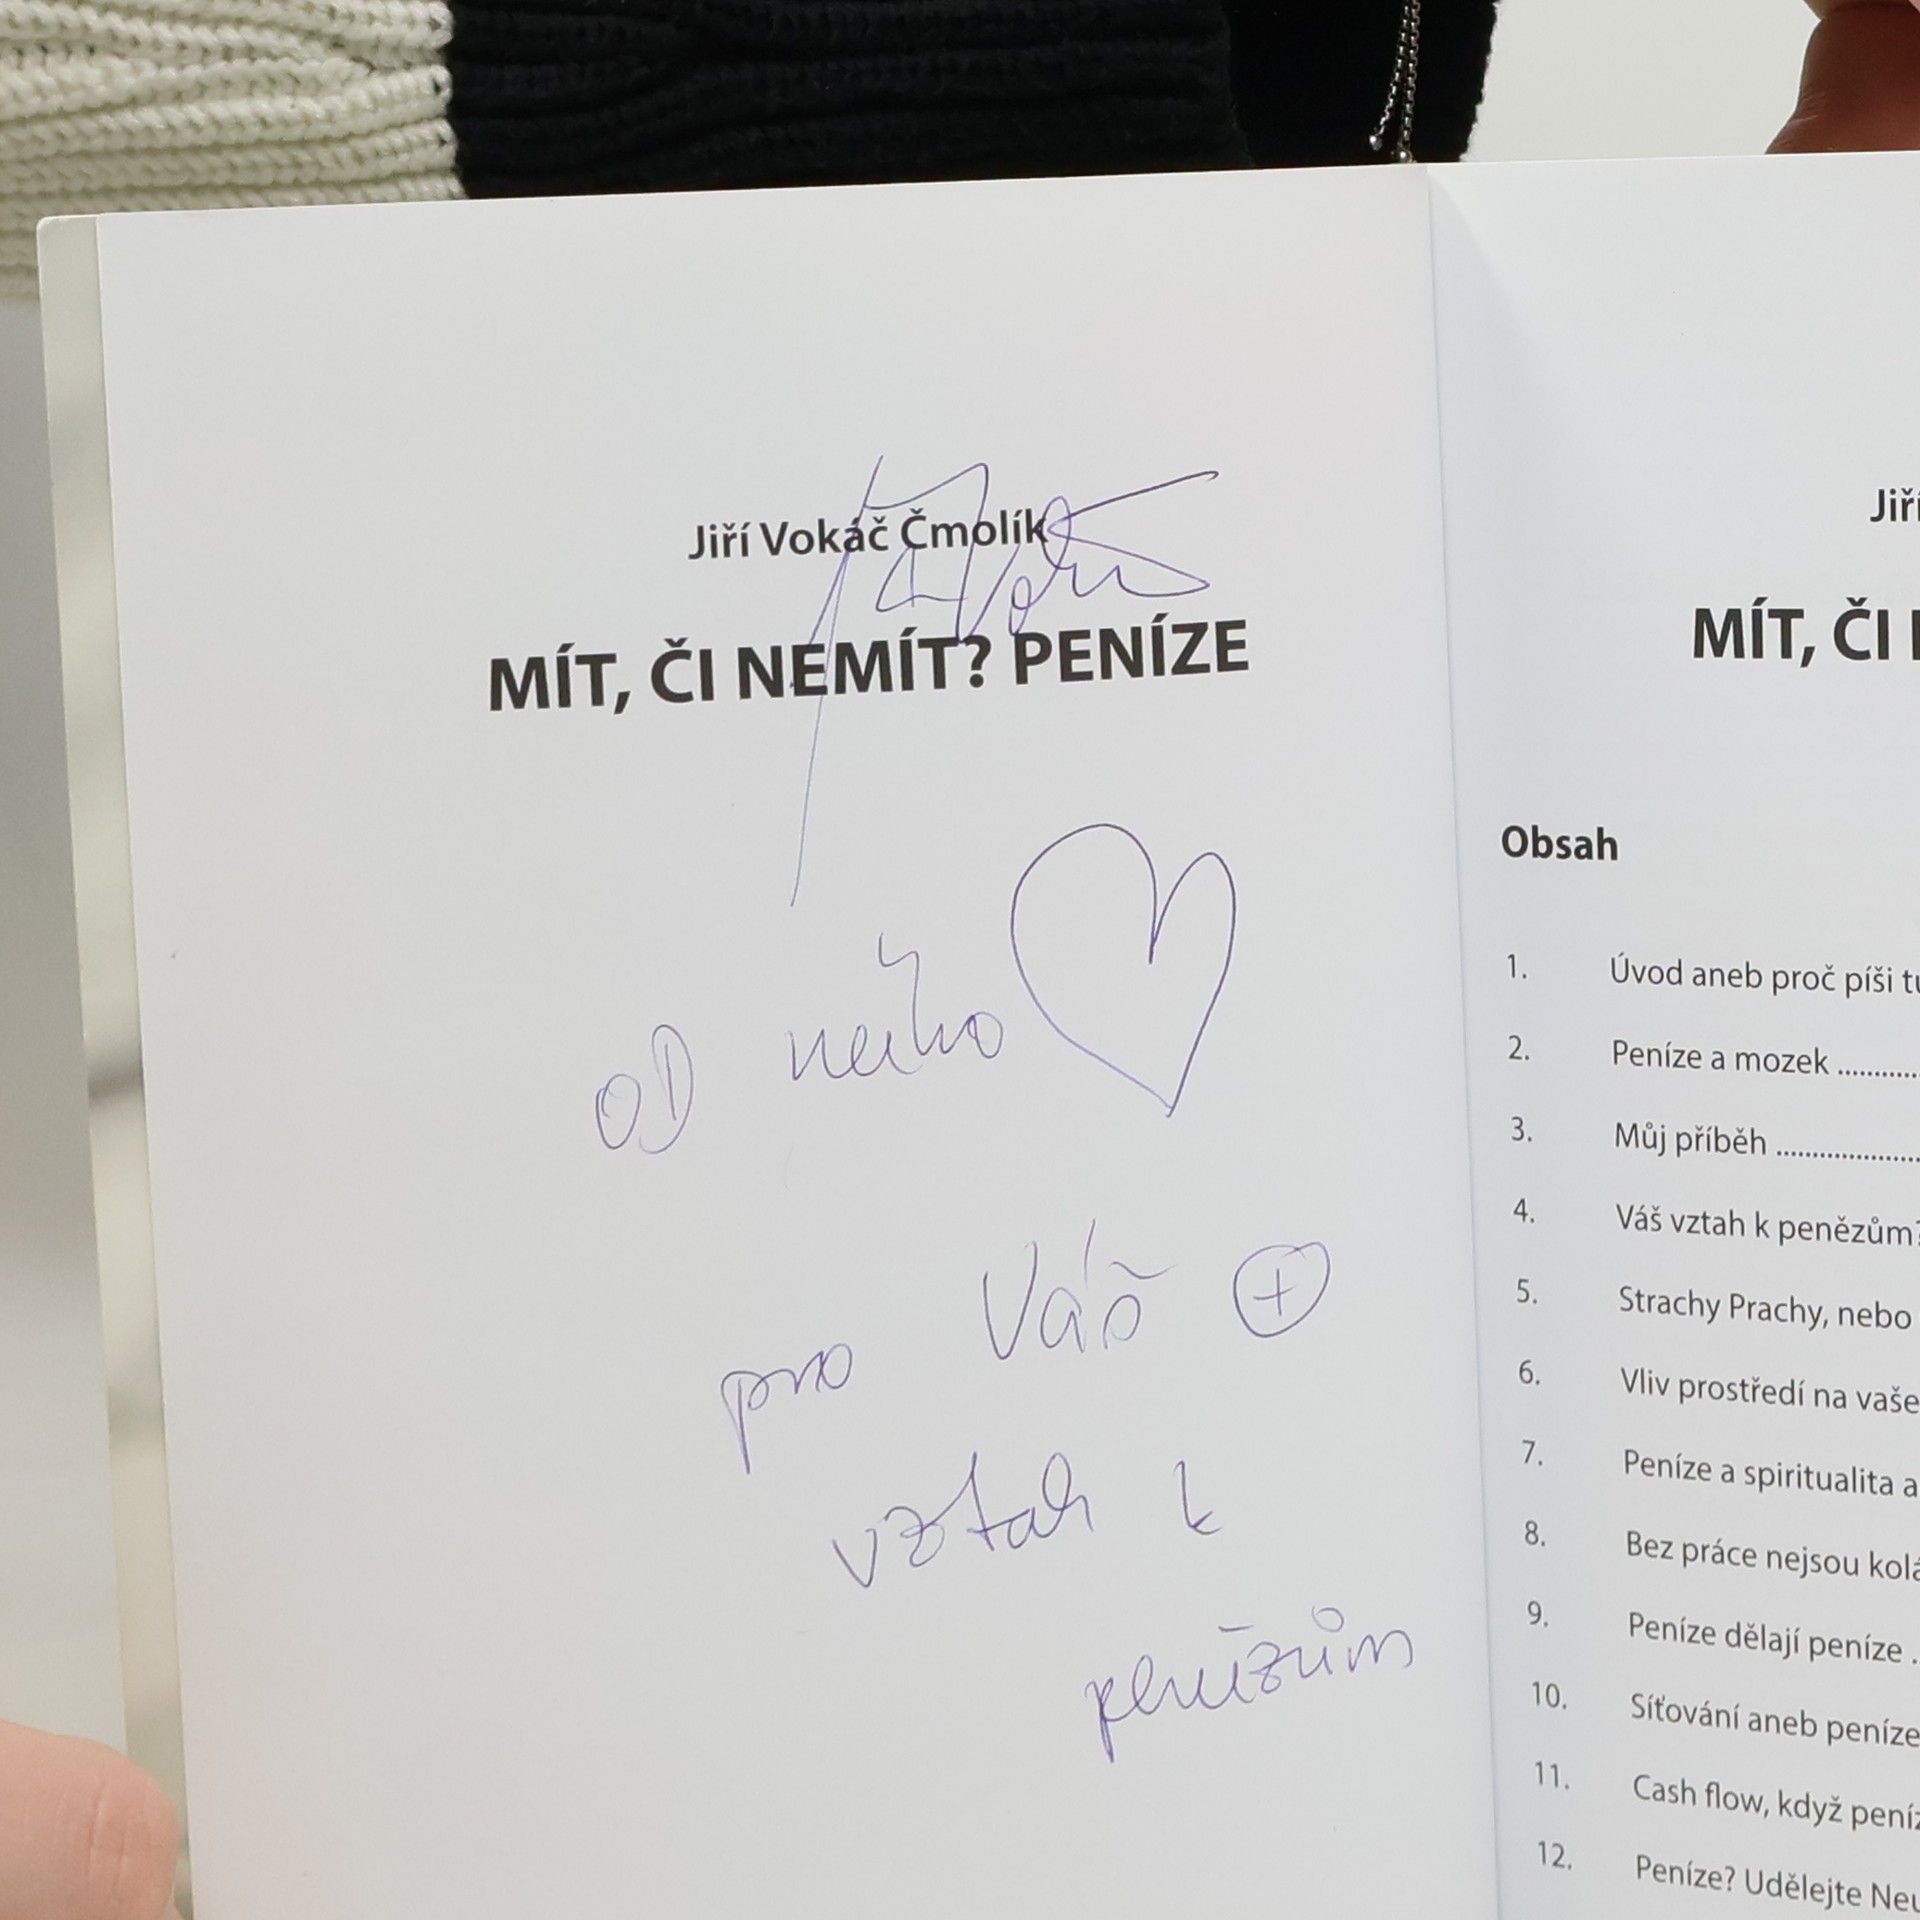 Jiří Vokáč Čmolík
MÍT, ČI NEMÍT? PENÍZE
OD
pro Váš +
vztah k
penězům
Jiř
MÍT, ČI
Obsah
1. Úvod aneb proč píši tu
2. Peníze a mozek ............
3. Můj příběh .....................
4. Váš vztah k penězům?
5. Strachy Prachy, nebo
6. Vliv prostředí na vaše
7. Peníze a spiritualita a
8. Bez práce nejsou kolá
9. Peníze dělají peníze .
10. Síťování aneb peníze
11. Cash flow, když peníz
12. Peníze? Udělejte Neu